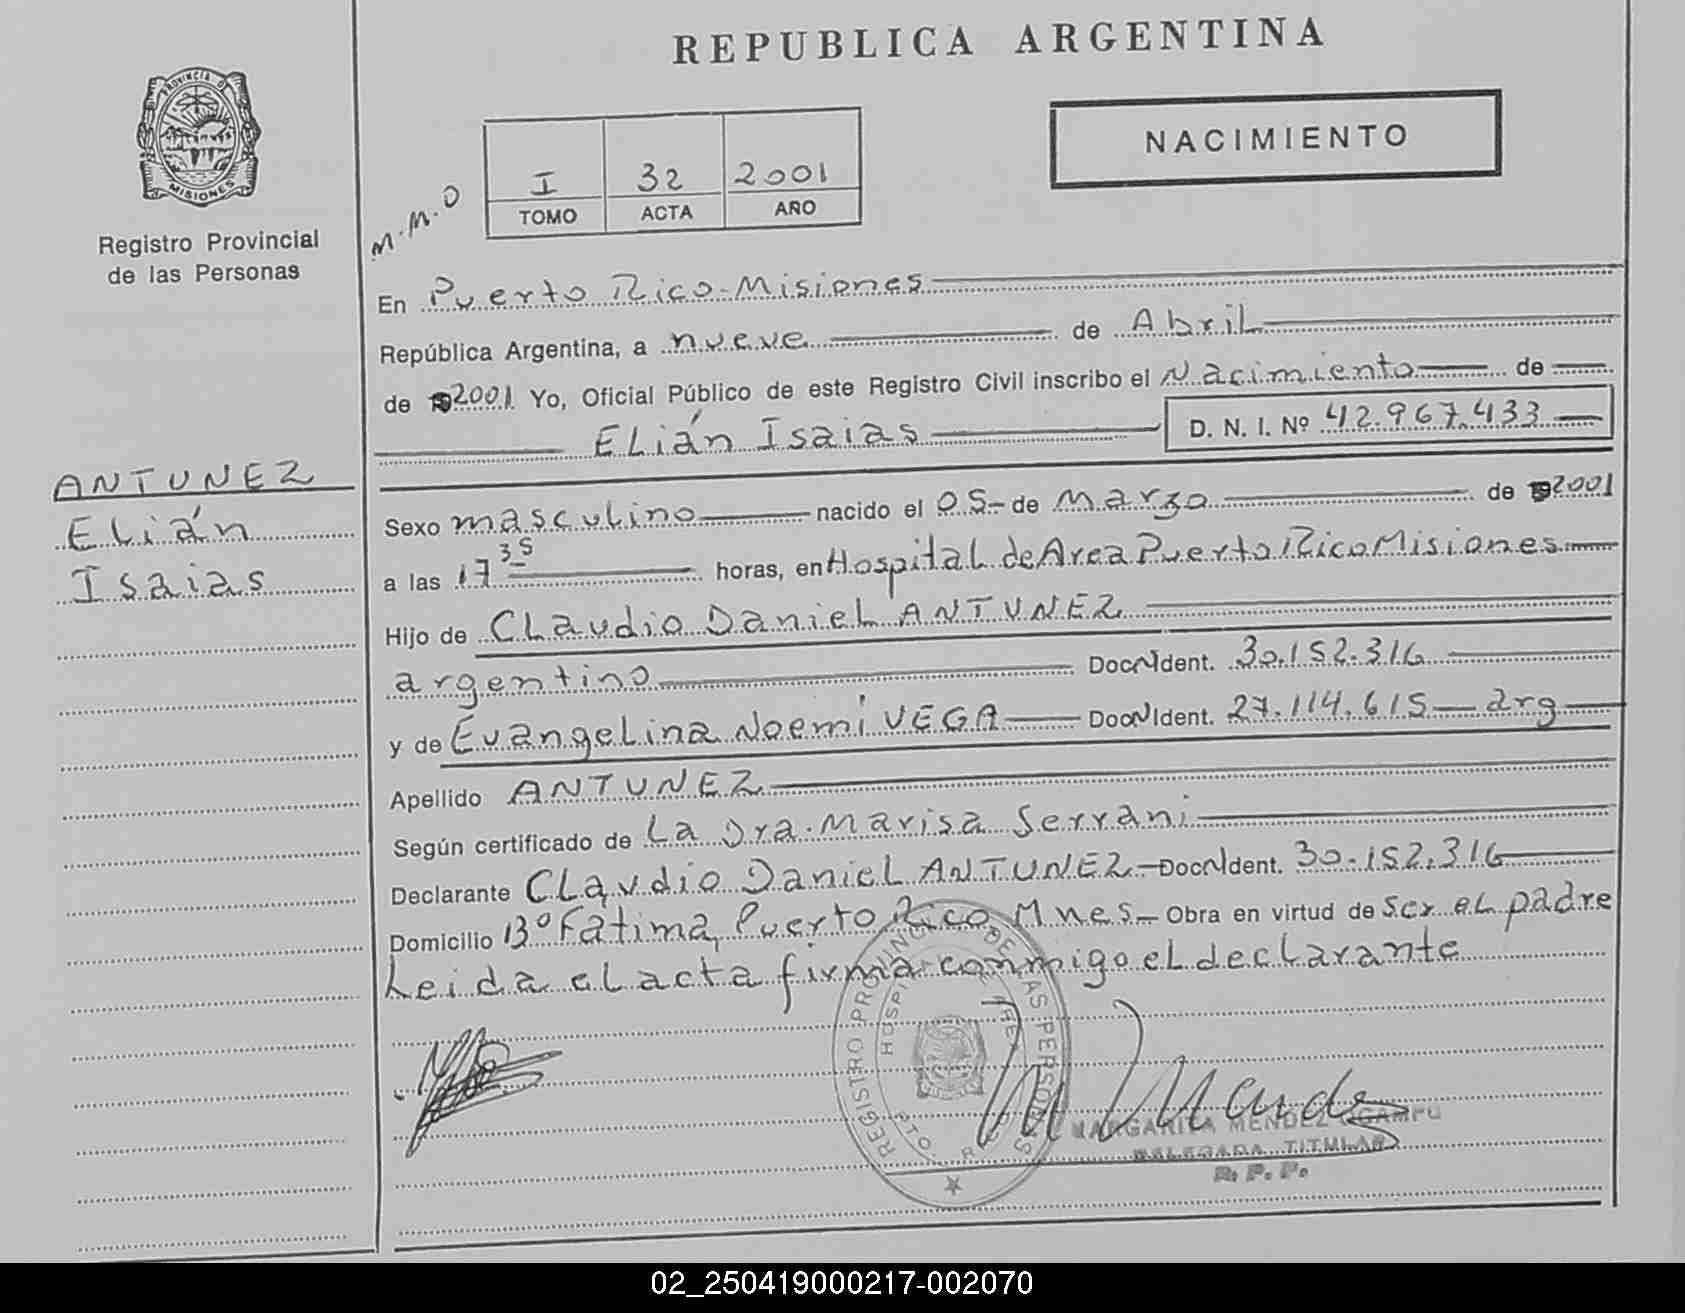 REPUBLICA ARGENTINA
PROVINCIA DE
MISIONES
Registro Provincial
de las Personas
NACIMIENTO
M.M.O
I 32 2001
TOMO ACTA AÑO
En Puerto Rico-Misiones
República Argentina, a nueve de Abril
de 2001 Yo, Oficial Público de este Registro Civil inscribo el Nacimiento de
Elián Isaias D. N. I. Nº 42.967.433
ANTUNEZ
Elián
Isaias
Sexo masculino nacido el 05-de Marzo de 2001
a las 17 35 horas, en Hospital de Area Puerto Rico Misiones
Hijo de Claudio Daniel ANTUNEZ
argentino Doc N Ident. 30.152.316
y de Evangelina Noemí VEGA Doc N Ident. 27.114.615 - arg
Apellido ANTUNEZ
Según certificado de La Dra. Marisa Serrani
Declarante Claudio Daniel ANTUNEZ - Doc N Ident. 30.152.316
Domicilio Bº Fátima, Puerto Rico, Mnes - Obra en virtud de ser el padre
Leida el acta firma conmigo el declarante
REGISTRO PROVINCIAL DE LAS PERSONAS
HOSPITAL DE AREA
PTO. RICO
MARGARITA MENDEZ OCAMPO
DELEGADA TITULAR
R. P. P.
02_250419000217-002070